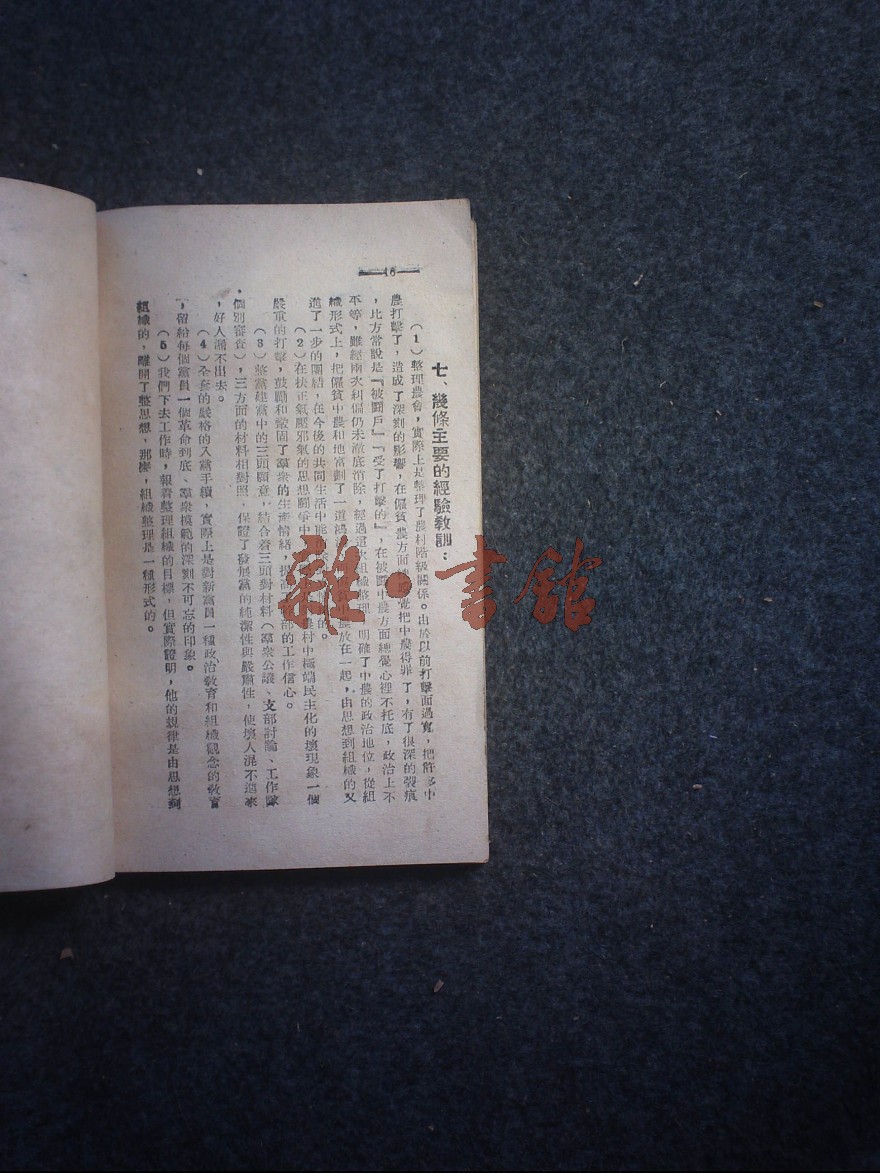 16
七、幾條主要的經驗教訓：
（1）整理農會，實際上是整理了農村階級關係。由於以前打擊面過寬，把許多中
農打擊了，造成了深刻的影響，在僱貧農方面總覺把中農得罪了，有了很深的裂痕
，比方常說是『被鬪戶』『受了打擊的』，在被鬪中農方面總覺心裡不托底，政治上不
平等，雖經兩次糾偏仍未澈底消除，經過這次組織整理，明確了中農的政治地位，從組
織形式上，把僱貧中農和地富劃了一道鴻 放在一起，由思想到組織的又
進了一步的團結，在今後的共同生活中 的。
（2）在扶正氣壓邪氣的思想鬪爭中 農村中極端民主化的壞現象一個
嚴重的打擊，鼓勵和鞏固了羣衆的生產情緒，提高 部的工作信心。
（3）整黨建黨中的三頭願意，結合着三頭對材料（羣衆公議、支部討論、工作隊
個別審查），三方面的材料相對照，保證了發展黨的純潔性與嚴肅性，使壞人混不進來
，好人漏不出去。
（4）全套的嚴格的入黨手續，實際上是對新黨員一種政治敎育和組織觀念的敎育
，留給每個黨員一個革命到底、羣衆模範的深刻不可忘的印象。
（5）我們下去工作時，報着整理組織的目標，但實際證明，他的規律是由思想到
組織的，離開了整思想，那麼，組織整理是一種形式的。
雜·書舘